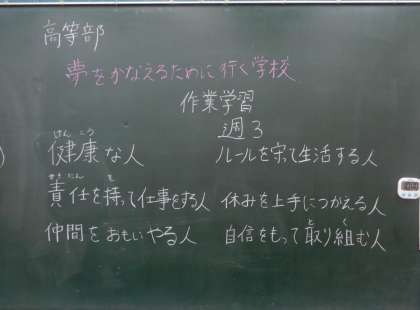 高等部
夢をかなえるために行く学校
作業学習
週3
けんこう
健康な人
ルールを守って生活する人
せきにん も
責任を持って仕事をする人
休みを上手につかえる人
仲間をおもいやる人
と く
自信をもって取り組む人